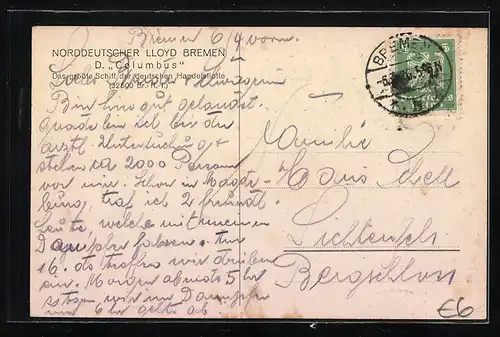 Bremen 6/4 vorm.
NORDDEUTSCHER LLOYD BREMEN
D. „Columbus"
Das größte Schiff der deutschen Handelsflotte
(32500 Br.-R.-T.)
Bin hier gut gelandet.
Gerade bin ich bei der
ärztl. Untersuchung, es
stehen ca 2000 Personen
vor mir. Schon in Magde-
burg traf ich 2 Freunde
heute, welche mit meinem
Dampfer fahren. Am
16. ds treffen wir drüben
ein. Morgen abends 5 Uhr
sitzen wir im Dampfer
um 6 Uhr gehts ab
BREMEN
5
Familie
Hans Schell
Lichtenfels
Bergschloss
E6